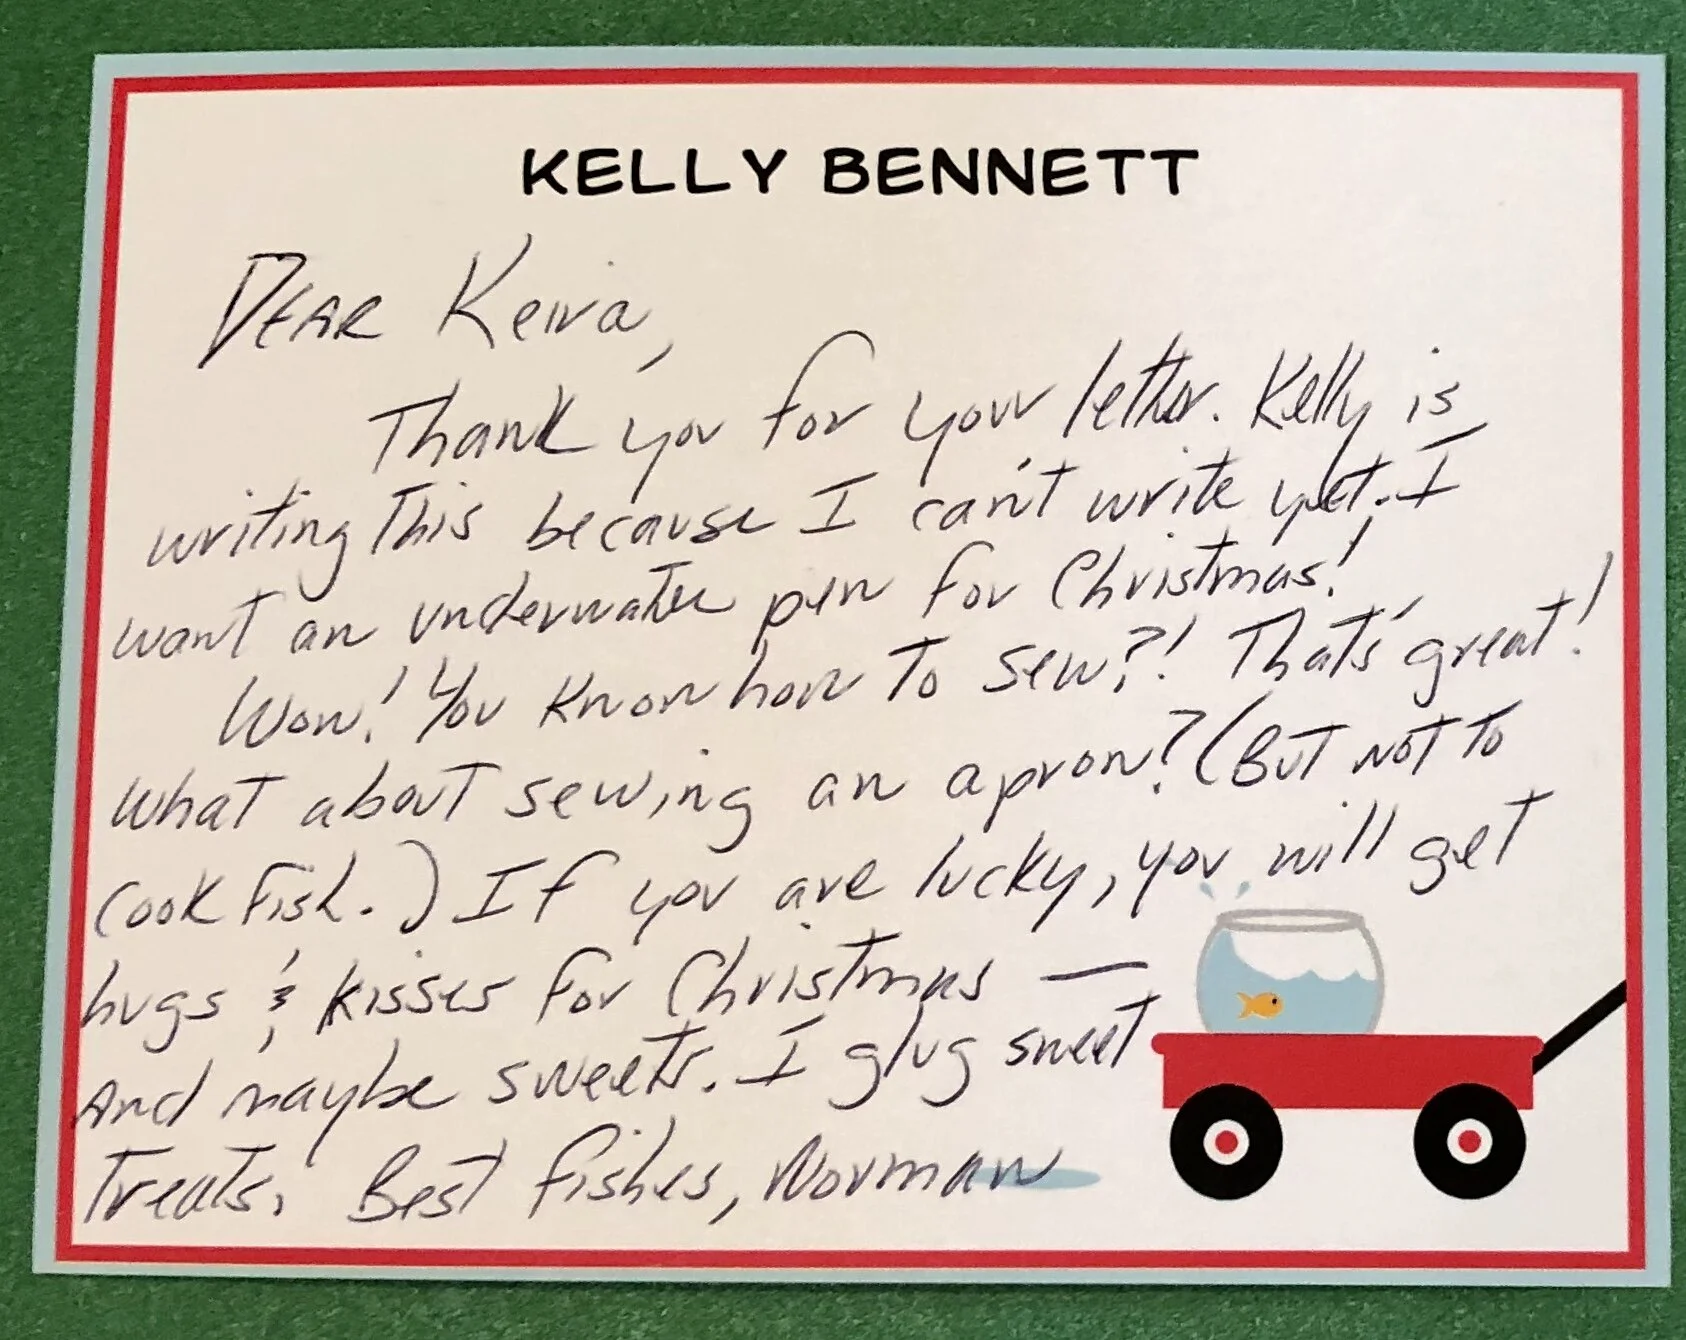 KELLY BENNETT
DEAR Keira,
Thank you for your letter. Kelly is
writing This because I can't write yet. I
want an underwater pen for Christmas!
Wow! You know how To sew?! That's great!
What about sewing an apron? (But not To
cook Fish.) If you are lucky, you will get
hugs & kisses for Christmas —
And maybe sweets. I glug sweet
Treats. Best fishes, Norman